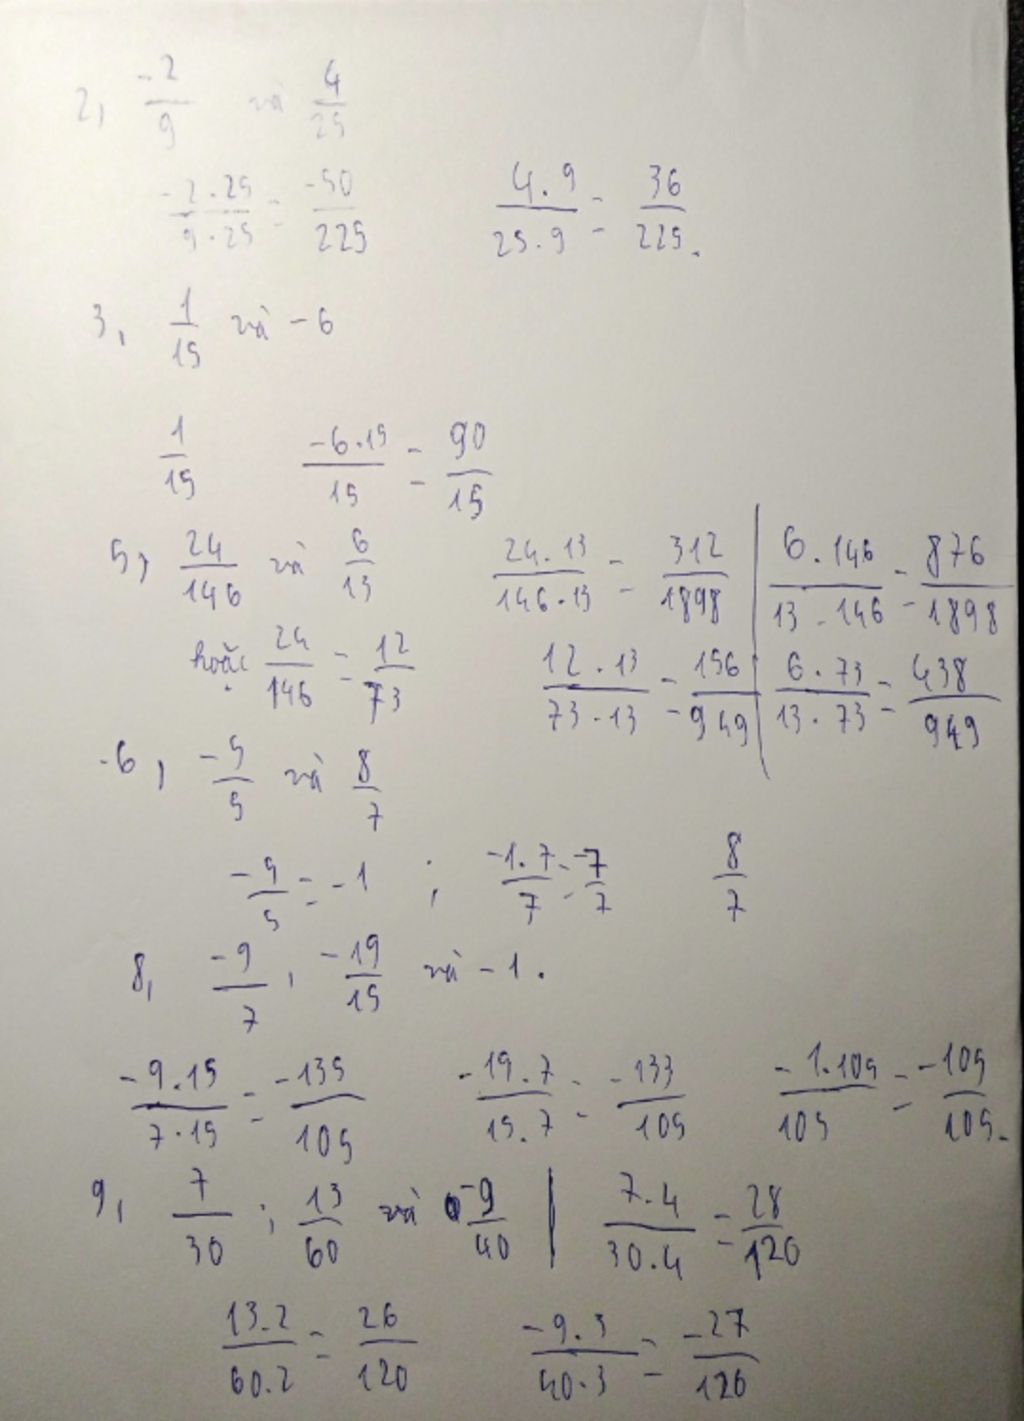 2, -2/9 và 4/25
-2.25/9.25 = -50/225 4.9/25.9 = 36/225.
3, 1/15 và -6
1/15 -6.15/15 = 90/15
5, 24/146 và 6/13 24.13/146.13 = 312/1898 | 6.146/13.146 = 876/1898
hoặc 24/146 = 12/73 12.13/73.13 = 156/949 | 6.73/13.73 = 438/949
6, -5/5 và 8/7
-5/5 = -1 ; -1.7/7 = -7/7 8/7
8, -9/7, -19/15 và -1.
-9.15/7.15 = -135/105 -19.7/15.7 = -133/105 -1.105/105 = -105/105.
9, 7/30 ; 13/60 và -9/40 | 7.4/30.4 = 28/120
13.2/60.2 = 26/120 -9.3/40.3 = -27/120